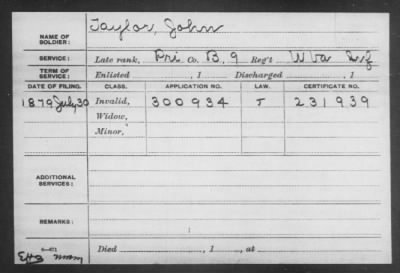 Taylor, John
NAME OF
SOLDIER:
SERVICE: Late rank, Pri Co. B, 9 Reg't W Va Inf
TERM OF
SERVICE: Enlisted , 1 Discharged , 1
DATE OF FILING. CLASS. APPLICATION NO. LAW. CERTIFICATE NO.
1879 July 30 Invalid, 300934 J 231939
Widow,
Minor,
ADDITIONAL
SERVICES:
REMARKS:
Died , 1 , at